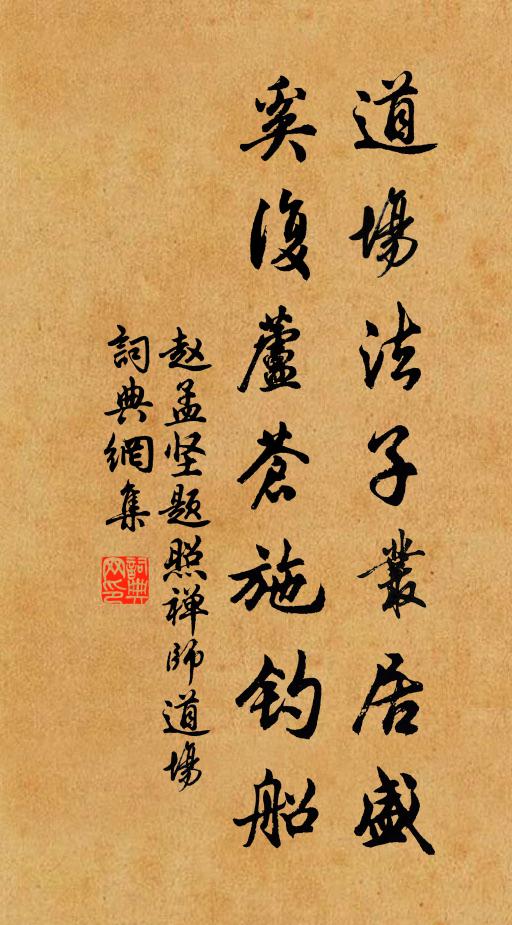 道場法子叢居盛
奚復蘆蒼施钓船
赵孟坚题照禅師道場
詞典網集
詞典网印